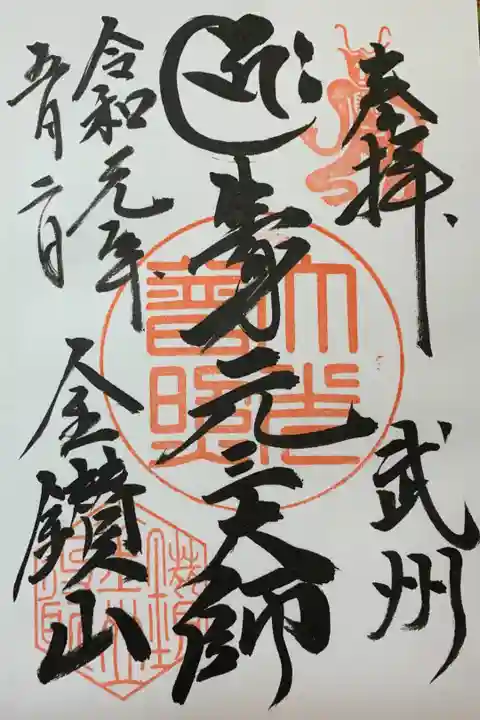 奉拝
武州
寿元三大師
令和元年
五月二日
金鑚山
大光普照